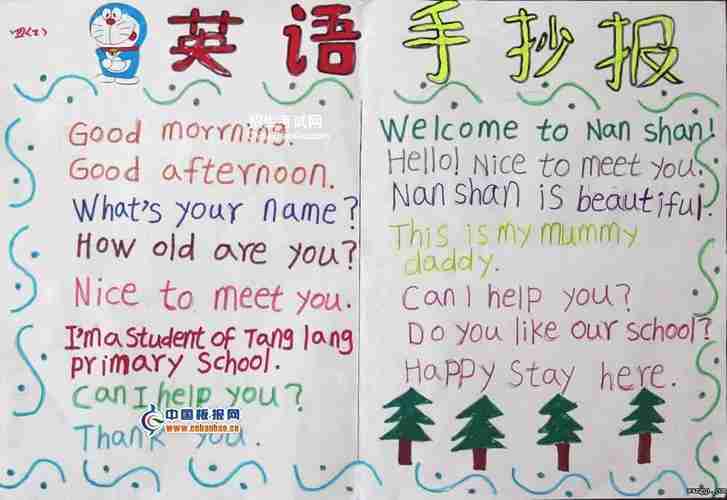 四(2)
英语手抄报
Good morrning.
Good afternoon.
What's your name?
How old are you?
Nice to meet you.
I'm a student of Tang lang
primary School.
Can I help you?
Thank you.
中国板报网
Welcome to Nan shan!
Hello! Nice to meet you.
Nan shan is beautiful.
This is my mummy
daddy.
Can I help you?
Do you like our school?
Happy Stay here.